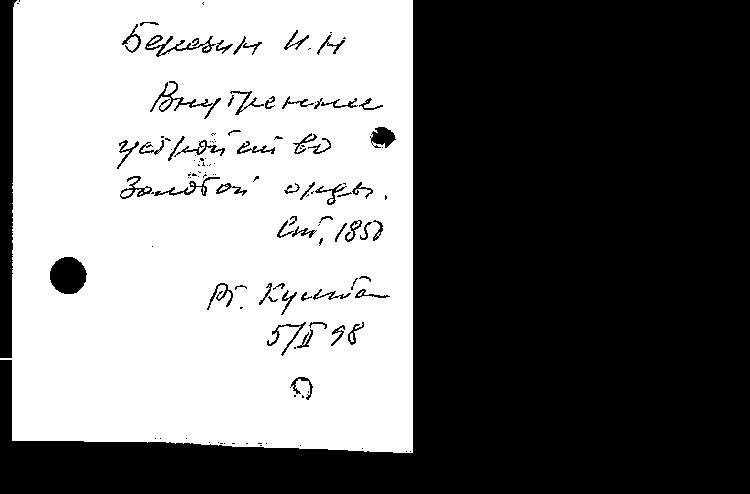 Березин И.Н
Внутреннее
устройство
Золотой орды.
Спб, 1850
5/II 98